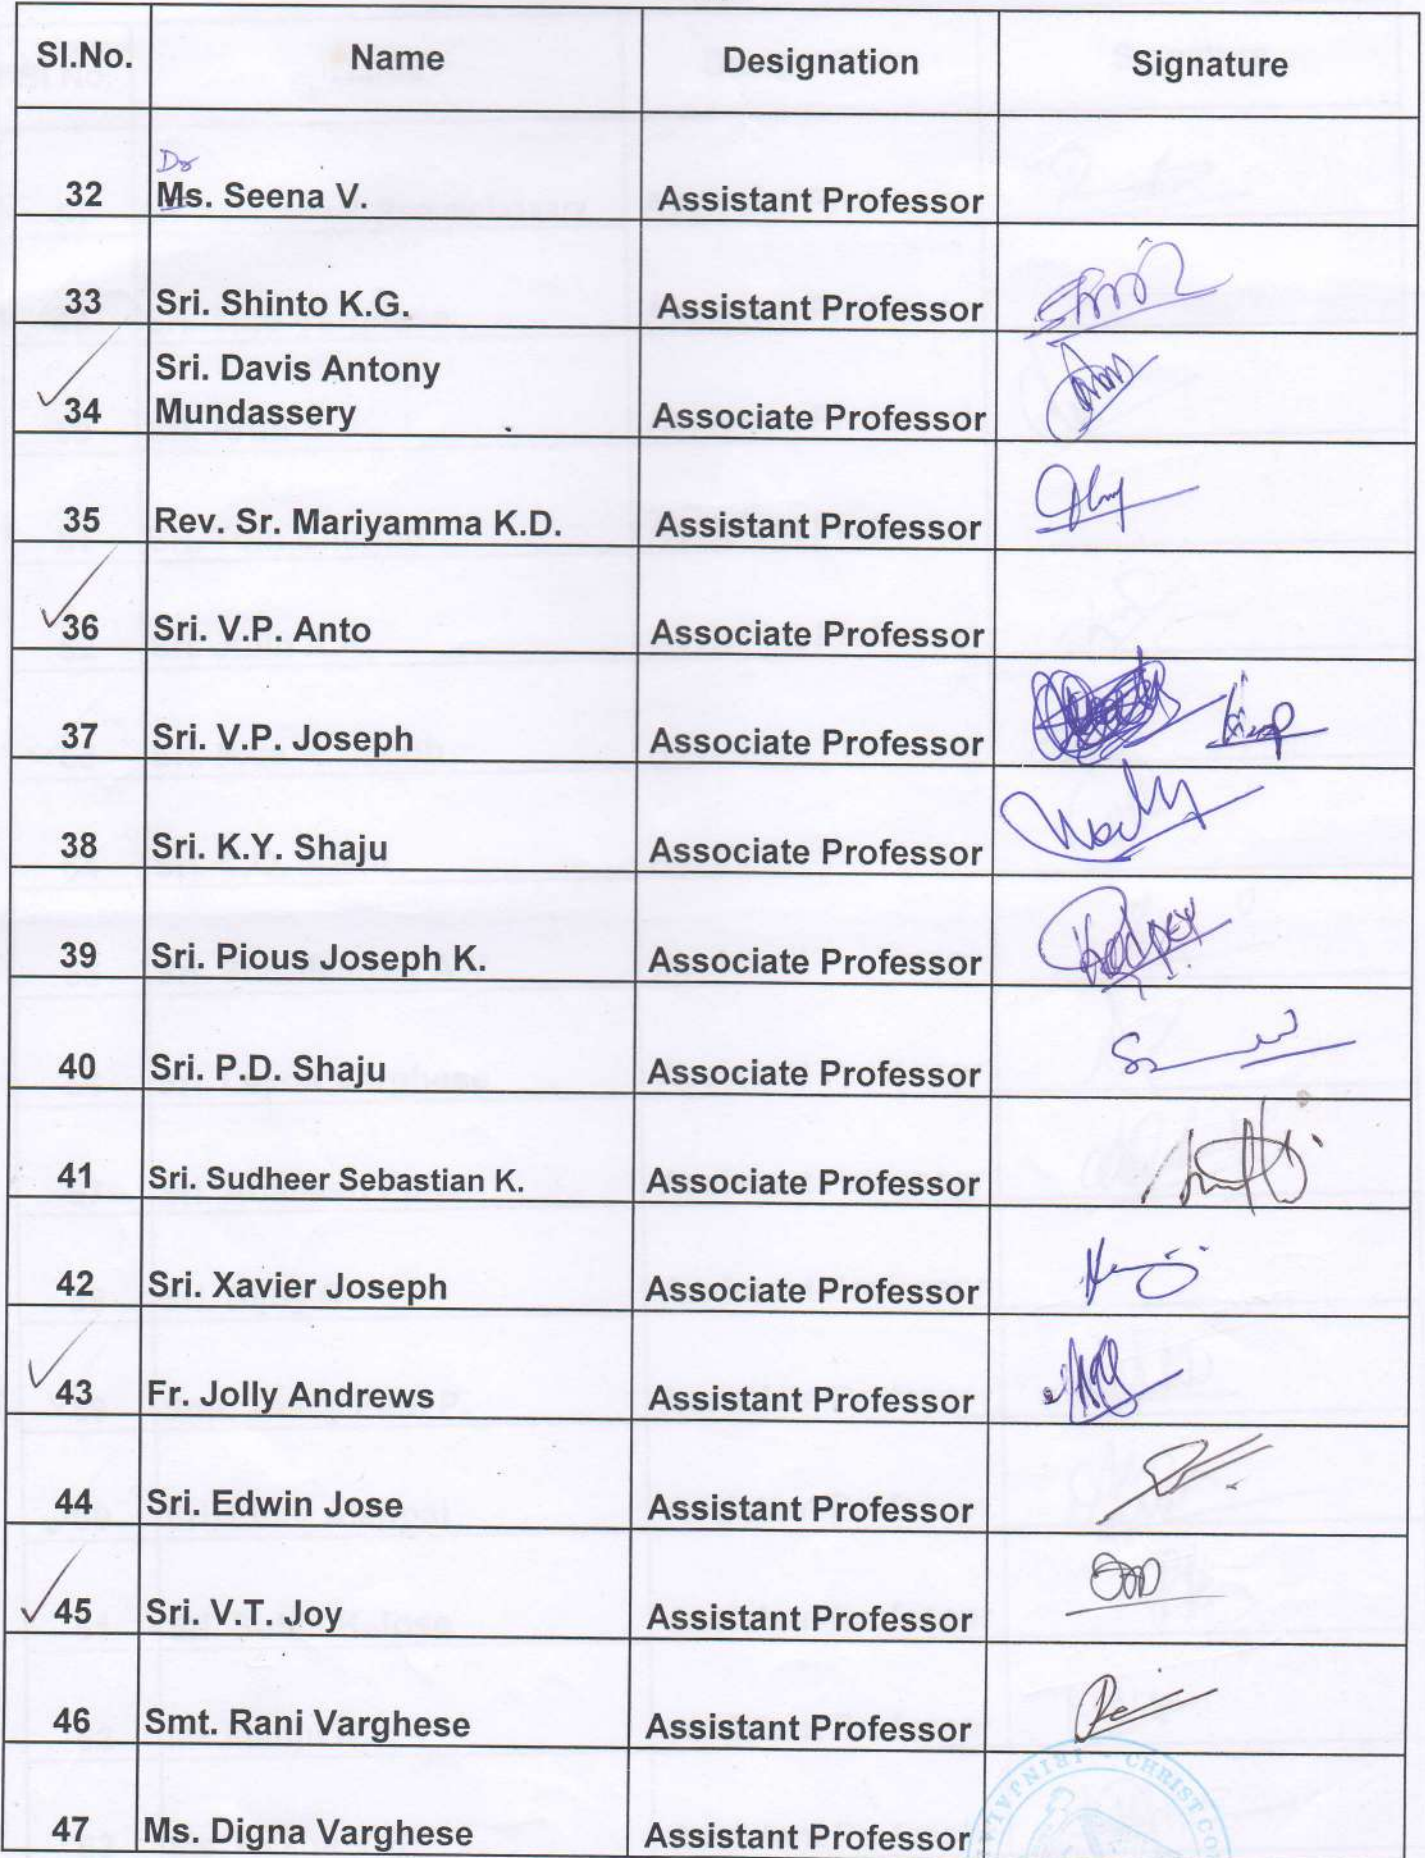 Sl.No. Name Designation Signature
Dr
32 Ms. Seena V. Assistant Professor
33 Sri. Shinto K.G. Assistant Professor
Sri. Davis Antony
34 Mundassery Associate Professor
35 Rev. Sr. Mariyamma K.D. Assistant Professor
36 Sri. V.P. Anto Associate Professor
37 Sri. V.P. Joseph Associate Professor
38 Sri. K.Y. Shaju Associate Professor
39 Sri. Pious Joseph K. Associate Professor
40 Sri. P.D. Shaju Associate Professor
41 Sri. Sudheer Sebastian K. Associate Professor
42 Sri. Xavier Joseph Associate Professor
43 Fr. Jolly Andrews Assistant Professor
44 Sri. Edwin Jose Assistant Professor
45 Sri. V.T. Joy Assistant Professor
46 Smt. Rani Varghese Assistant Professor
47 Ms. Digna Varghese Assistant Professor
CHRIST